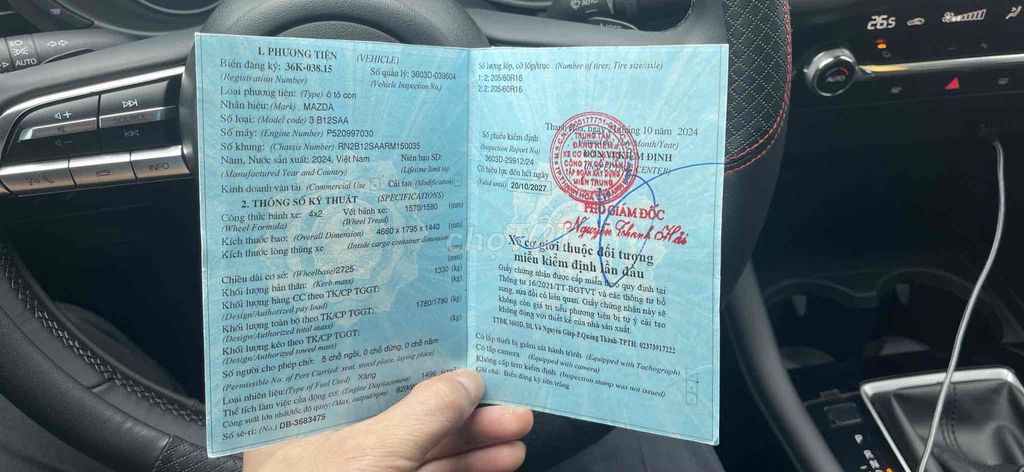 AUTO
SOURCE
INFO
1. PHƯƠNG TIỆN (VEHICLE)
Biển đăng ký: 36K-038.15 Số quản lý: 3603D-039604
(Registration Number) (Vehicle Inspection No.)
Loại phương tiện: (Type) ô tô con
Nhãn hiệu: (Mark) MAZDA
Số loại: (Model code) 3 B12SAA
Số máy: (Engine Number) P520997030
Số khung: (Chassis Number) RN2B12SAARM150035
Năm, Nước sản xuất: 2024, Việt Nam Niên hạn SD:
(Manufactured Year and Country) (Lifetime limit to)
Kinh doanh vận tải (Commercial Use - Cải tạo (Modification) -
2. THÔNG SỐ KỸ THUẬT (SPECIFICATIONS)
Công thức bánh xe: 4x2 Vết bánh xe: 1570/1580 (mm)
(Wheel Formula) (Wheel Tread)
Kích thước bao: (Overall Dimension) 4660 x 1795 x 1440 (mm)
Kích thước lòng thùng xe (Inside cargo container dimension
(mm)
Chiều dài cơ sở: (Wheelbase) 2725 (mm)
Khối lượng bản thân: (Kerb mass) 1330 (kg)
Khối lượng hàng CC theo TK/CP TGGT: (kg)
(Design/Authorized pay load)
Khối lượng toàn bộ theo TK/CP TGGT: 1780/1780 (kg)
(Design/Authorized total mass)
Khối lượng kéo theo TK/CP TGGT: (kg)
(Design/Authorized towed mass)
Số người cho phép chở: 5 chỗ ngồi, 0 chỗ đứng, 0 chỗ nằm
(Permissible No. of Pers Carried: seat, stood place, laying place)
Loại nhiên liệu: (Type of Fuel Used) Xăng
Thể tích làm việc của động cơ: (Engine Displacement) 1496 (cm3)
Công suất lớn nhất/tốc độ quay: (Max. output/rpm)
Số sê-ri: (No.) DB-3683475
Số lượng lốp, cỡ lốp/trục (Number of tires; Tire size/axle)
1: 2; 205/60R16
2: 2; 205/60R16
Thanh Hóa, ngày 21 tháng 10 năm 2024
Số phiếu kiểm định
(Inspection Report No)
3603D-29912/24
ĐƠN VỊ KIỂM ĐỊNH
Có hiệu lực đến hết ngày
(Valid until) 20/10/2027
TRUNG TÂM
ĐĂNG KIỂM
XE CƠ GIỚI
CÔNG TY CỔ PHẦN
TẬP ĐOÀN XÂY DỰNG
MIỀN TRUNG
PHÓ GIÁM ĐỐC
Nguyễn Thanh Hải
Xe cơ giới thuộc đối tượng
miễn kiểm định lần đầu
Giấy chứng nhận được cấp miễn theo quy định tại
Thông tư 16/2021/TT-BGTVT và các thông tư bổ
sung, sửa đổi có liên quan. Giấy chứng nhận này sẽ
không còn giá trị nếu phương tiện bị tự ý cải tạo
không đúng với thiết kế của nhà sản xuất.
TTĐK 3603D, ĐL Võ Nguyên Giáp-P.Quảng Thành-TPTH: 02373917222
Có lắp thiết bị giám sát hành trình (Equipped with Tachograph)
Có lắp camera (Equipped with camera)
Không cấp tem kiểm định (Inspection stamp was not issued)
Ghi chú: Biển đăng ký nền trắng.
26.5
AUTO